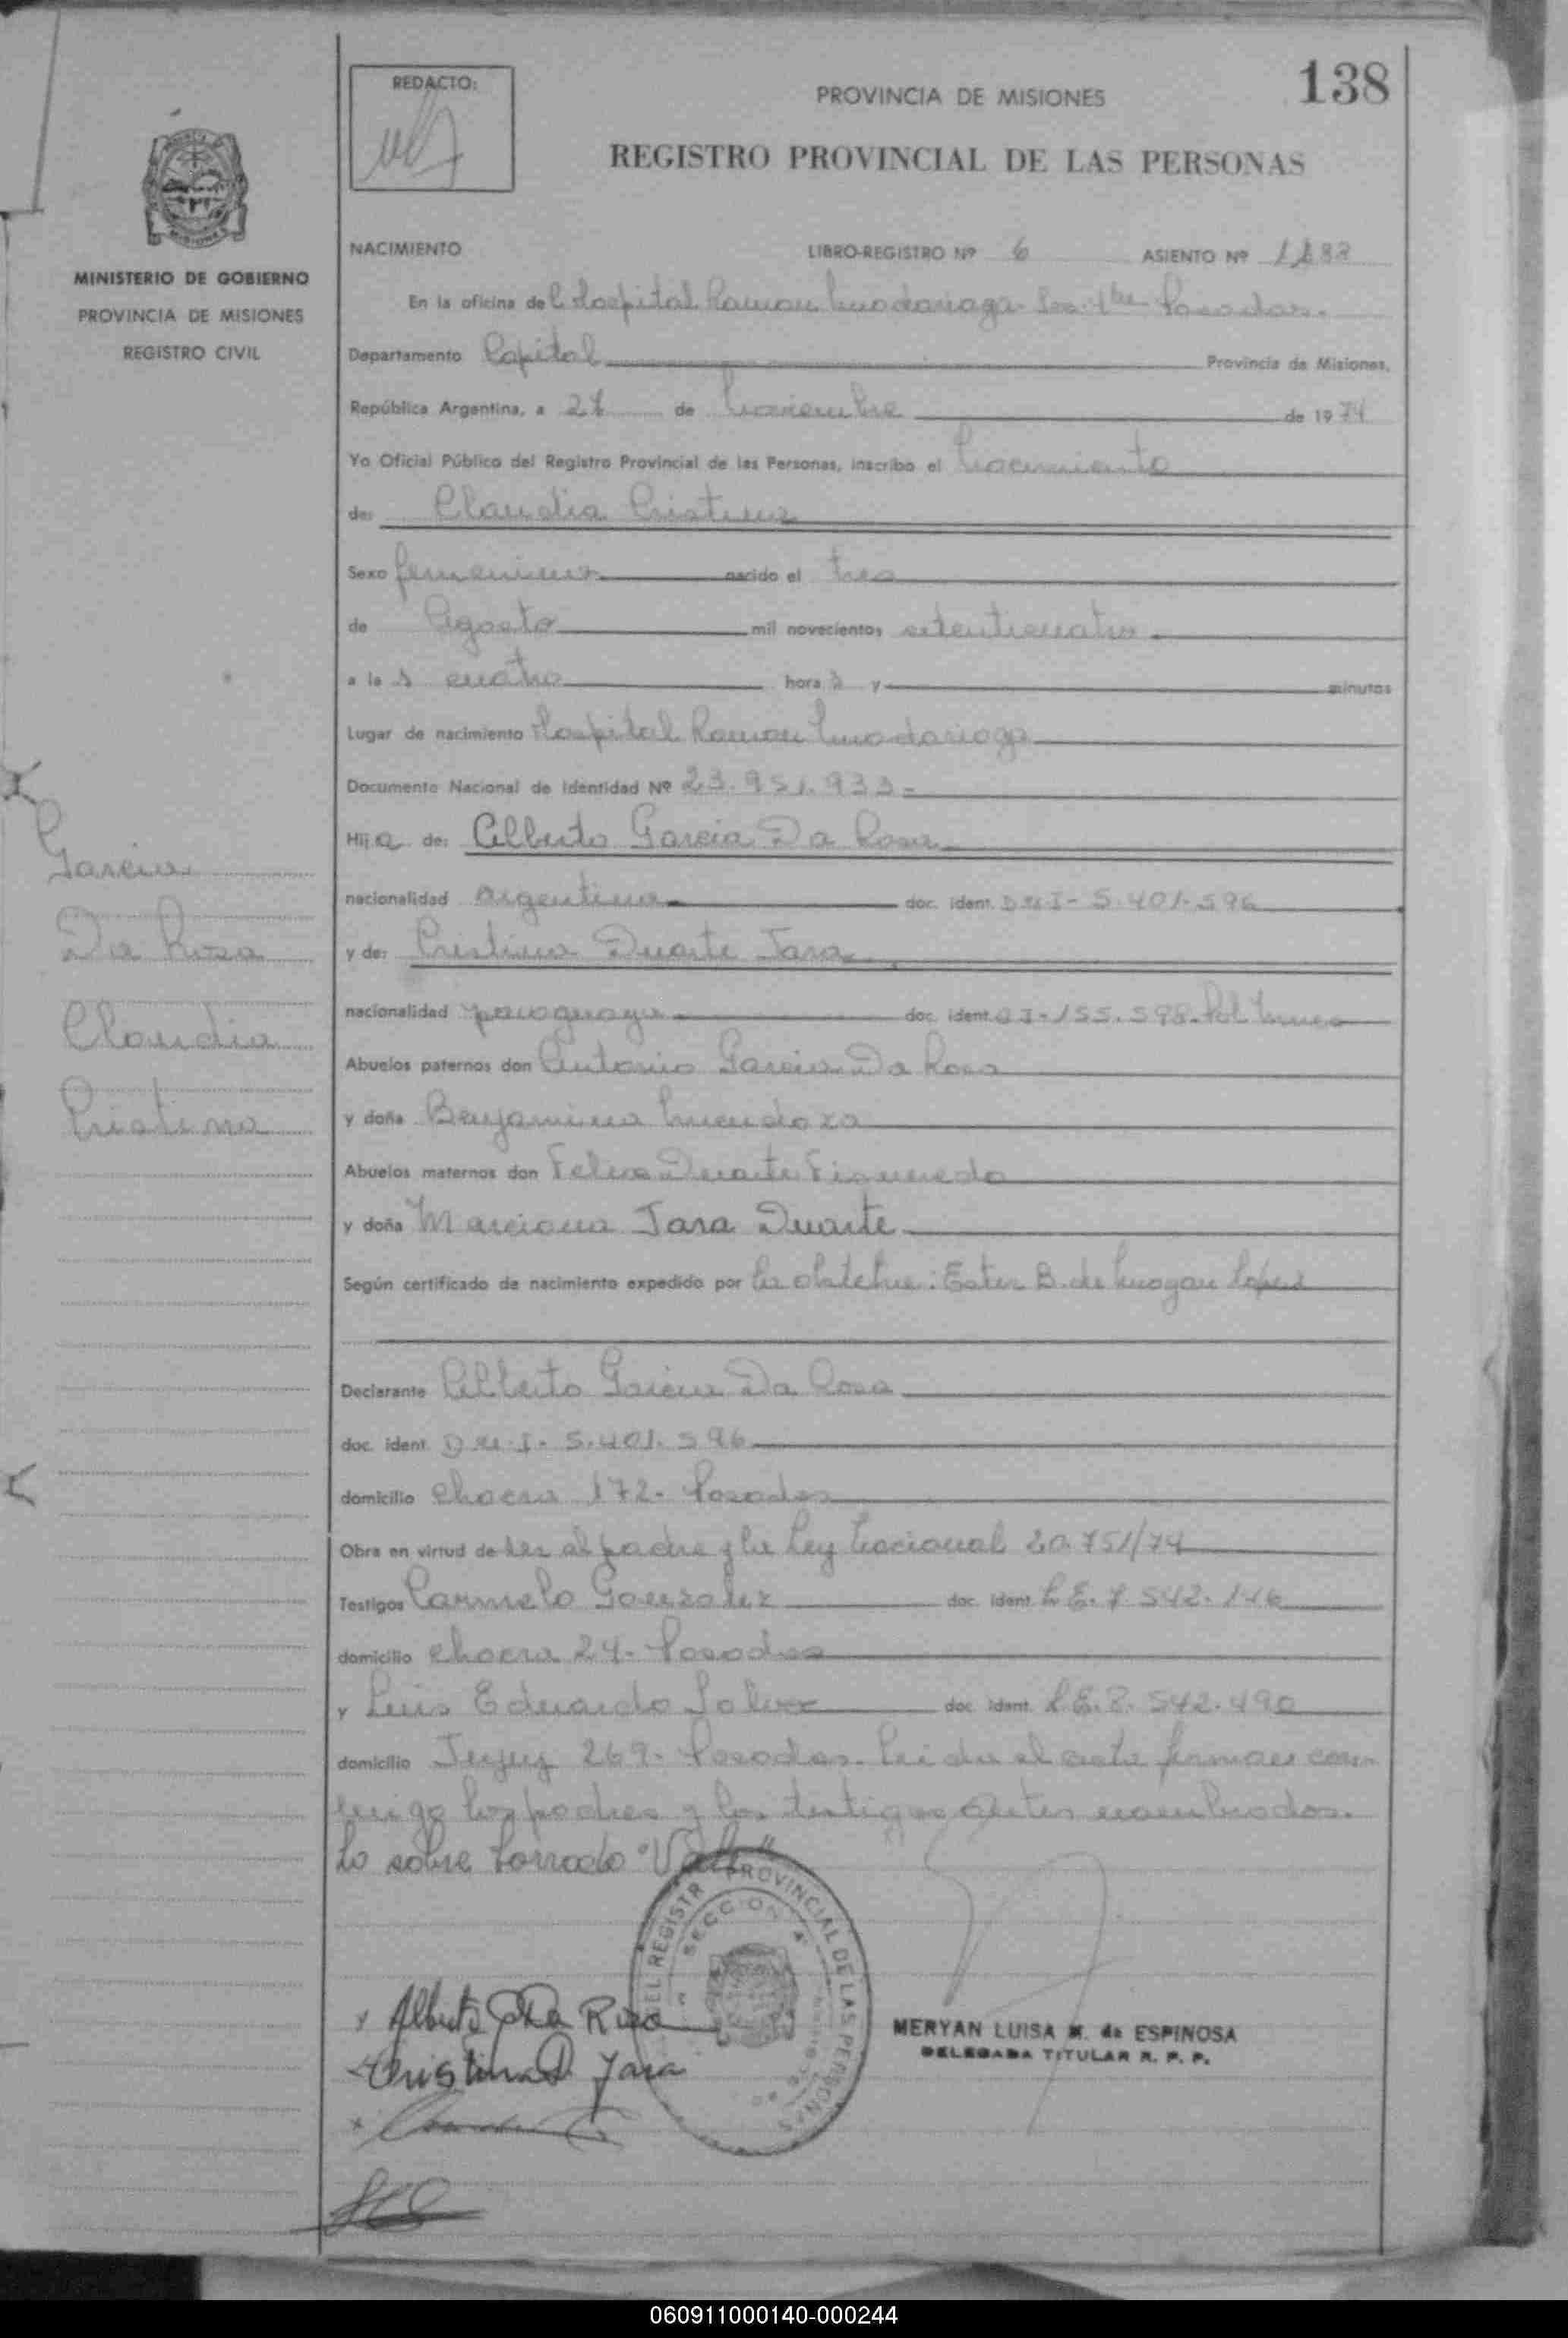 138
REDACTO:
PROVINCIA DE MISIONES
REGISTRO PROVINCIAL DE LAS PERSONAS
MISIONES
MINISTERIO DE GOBIERNO
PROVINCIA DE MISIONES
REGISTRO CIVIL
NACIMIENTO LIBRO-REGISTRO Nº 6 ASIENTO Nº
En la oficina del Hospital Ramon Madariaga Posadas.
Departamento Capital Provincia de Misiones,
República Argentina, a de Noviembre de 1974
Yo Oficial Público del Registro Provincial de las Personas, inscribo el Nacimiento
de: Claudia Cristina
Sexo femenino nacido el tres
de Agosto mil novecientos setenticuatro
a las cuatro horas y minutos
Lugar de nacimiento Hospital Ramon Madariaga
Documento Nacional de Identidad Nº 23.951.933-
Hija de: Alberto Garcia Da Rosa
nacionalidad argentina doc. ident. DNI- 5.401.596
y de: Cristina Duarte Jara
nacionalidad paraguaya doc. ident. CI-155.598- Pol Mnes
Abuelos paternos don Antonio Garcia Da Rosa
y doña Benjamina Mendoza
Abuelos maternos don Duarte Figueredo
y doña Marciana Jara Duarte
Según certificado de nacimiento expedido por la obstetra: Ester B. de
Declarante Alberto Garcia Da Rosa
doc. ident. DNI- 5.401.596
domicilio Chacra 172- Posadas
Obra en virtud de ser el padre y la Ley Nacional 20.751/74
Testigos Carmelo Gonzalez doc. ident. L.E. 7.542.146
domicilio Chacra 24- Posadas
y Luis Eduardo doc. ident. L.E. 8.542.490
domicilio Jujuy 269- Posadas. Leida el acta firman con
migo los padres y los testigos antes nombrados.
Lo sobre borrado "Vale"
Garcia
Da Rosa
Claudia
Cristina
REGISTRO PROVINCIAL DE LAS PERSONAS
SECCION 4
Alberto G Da Rosa
Cristina D Jara
MERYAN LUISA M. de ESPINOSA
DELEGADA TITULAR R. P. P.
060911000140-000244